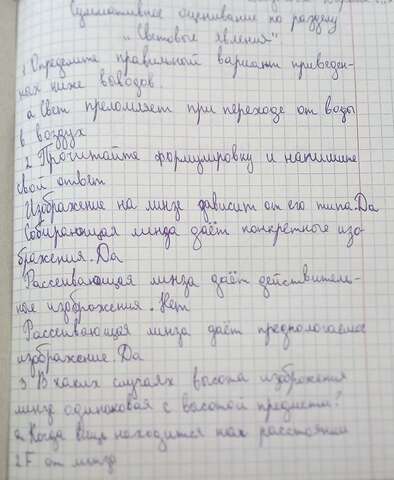 Суммативнее оценивание по разделу
„Световые явления"
1 Определите правильный вариант приведен-
ных ниже выводов.
а. Свет преломляет при переходе от воды
в воздух
2. Прочитайте формулировку и напишите
свой ответ
Изображение на линзе зависит от его типа. Да
Собирающая линза даёт конкретные изо-
бражения. Да
Рассеивающая линза даёт действитель-
ное изображения. Нет
Рассеивающая линза даёт предпологаемое
изображение. Да
3. В каких случаях высота изображения
линзе одинаковая с высотой предмета?
а. Когда вещь находится на расстоянии
2F от линза